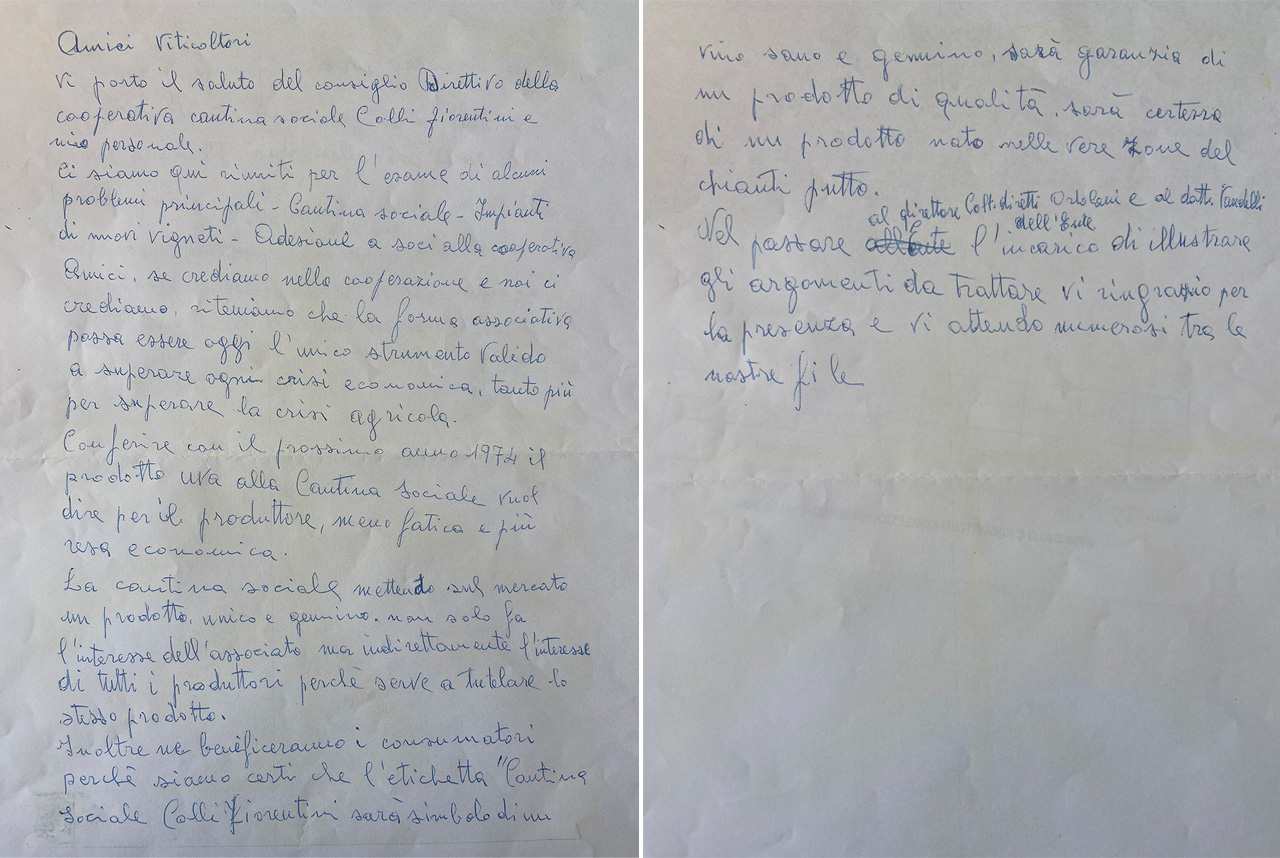 Amici Viticoltori
Vi porto il saluto del consiglio Direttivo della
cooperativa cantina sociale Colli fiorentini e
mio personale.
Ci siamo qui riuniti per l'esame di alcuni
problemi principali - Cantina sociale - Impianti
di nuovi vigneti - Adesioni a soci alla cooperativa
Amici, se crediamo nella cooperazione e noi ci
crediamo, riteniamo che la forma associativa
possa essere oggi l'unico strumento valido
a superare ogni crisi economica, tanto più
per superare la crisi agricola.
Conferire con il prossimo anno 1974 il
prodotto uva alla Cantina Sociale vuol
dire per il produttore, meno fatica e più
resa economica.
La cantina sociale mettendo sul mercato
un prodotto, unico e genuino, non solo fa
l'interesse dell'associato ma indirettamente l'interesse
di tutti i produttori perchè serve a tutelare lo
stesso prodotto.
Inoltre ne beneficeranno i consumatori
perchè siamo certi che l'etichetta "Cantina
Sociale Colli Fiorentini sarà simbolo di un
vino sano e genuino, sarà garanzia di
un prodotto di qualità, sarà certezza
di un prodotto nato nelle vere zone del
chianti putto.
al direttore Colt. diretti Ortolani e al dott.
dell'Ente
Nel passare all'Ente l'incarico di illustrare
gli argomenti da trattare vi ringrazio per
la presenza e vi attendo numerosi tra le
nostre file